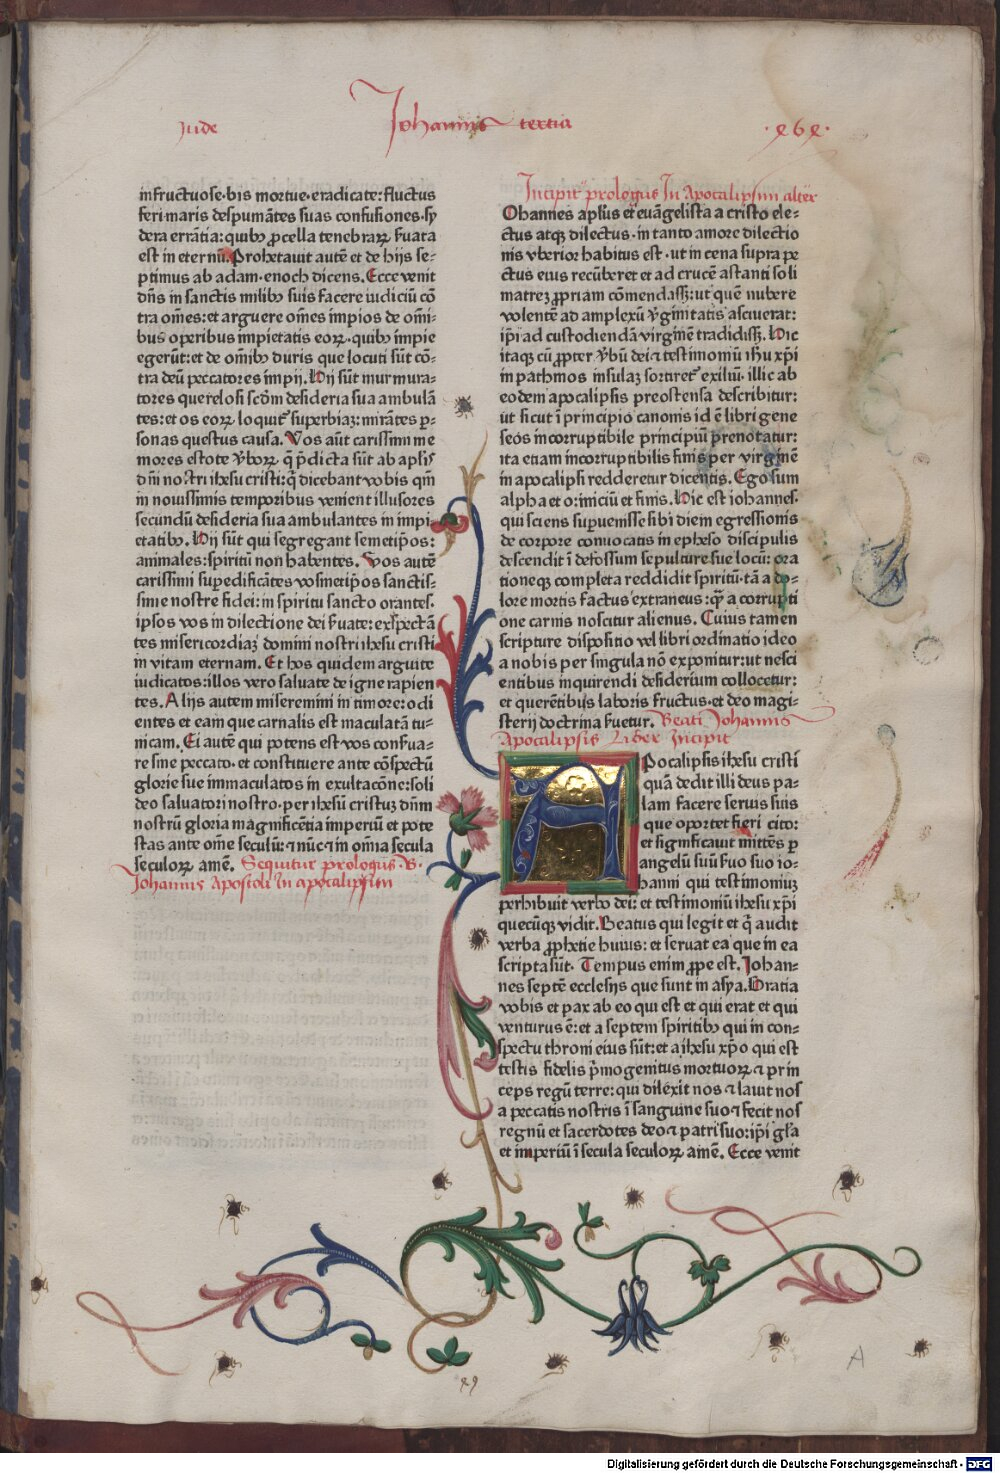 Jude
Johannis tertia
·464·
infructuose·bis mortue·eradicate:fluctus
feri maris despumātes suas confusiones·sy
dera errātia:quibꝰ ꝓcella tenebraꝝ ẜuata
est in eternū.Prohetauit autē et de hijs se-
ptimus ab adam·enoch dicens.Ecce venit
dn̄s in sanctis milibꝰ suis facere iudiciū cō
tra om̄es:et arguere om̄es impios de om̄i-
bus operibus impietatis eoꝝ·quibꝰ impie
egerūt:et de om̄ibꝰ duris que locuti sūt cō-
tra deū peccatores impij.Hij sūt murmura-
tores querelosi scd̄m desideria sua ambulā
tes:et os eoꝝ loquit̄ superbiaꝫ:mirātes ꝑ-
sonas questus causa.Vos aūt carissimi me
mores estote v̄boꝝ q̄ p̄dicta sūt ab apl̄is
dn̄i nostri ihesu cristi:q̄ dicebant vobis qm̄
in nouissimis temporibus venient illusores
secundū desideria sua ambulantes in impi
etatibꝰ.Hij sūt qui segregant semetip̄os:
animales:spiritū non habentes.Vos autē
carissimi suꝑedificātes vosmetip̄os sanctis-
sime nostre fidei:in spiritu sancto orantes·
ipsos vos in dilectione dei ẜuate:exspectā
tes misericordiaꝫ domini nostri ihesu cristi
in vitam eternam.Et hos quidem arguite
iudicatos:illos vero saluate de igne rapien
tes.Alijs autem miseremini in timore:odi
entes et eam que carnalis est maculatā tu-
nicam.Ei autē qui potens est vos conẜua-
re sine peccato·et constituere ante cōspectū
glorie sue immaculatos in exultacōne:soli
deo saluatori nostro·per ihesū cristuꝫ dn̄m
nostrū gloria magnificētia imperiū et pote
stas ante om̄e seculū:⁊ nūc⁊ in om̄ia secula
seculoꝝ amē. Sequitur prologus B.
Johannis Apostoli In apocalipsim
Incipit prologus In Apocalipsim alter
Ohannes apl̄us et euāgelista a cristo ele-
ctus atqꝫ dilectus·in tanto amore dilectio
nis vberior habitus est·ut in cena supra pe
ctus eius recūberet et ad crucē astanti soli
matreꝫ ꝓpriam cōmendasꝫ:ut quē nubere
volentē ad amplexū v̄ginitatis asciuerat:
ip̄i ad custodiendā virginē tradidisꝫ.Hic
itaqꝫ cū ꝓpter v̄bū dei⁊ testimoniū ih̄u xp̄i
in pathmos insulaꝫ sortiret̄ exiliū·illic ab
eodem apocalipsis preostensa describitur:
ut sicut ī principio canonis id ē libri gene
seos incorruptibile principiū prenotatur:
ita etiam incorruptibilis finis per virginē
in apocalipsi redderetur dicentis.Ego sum
alpha et o:iniciū et finis.Hic est iohannes·
qui sciens suꝑuenisse sibi diem egressionis
de corpore conuocatis in epheso discipulis
descendit ī defossum sepulture sue locū:ora
tioneqꝫ completa reddidit spiritū·tā a do-
lore mortis factus extraneus:q̄ꝫ a corrupti
one carnis noscitur alienus.Cuius tamen
scripture dispositio vel libri ordinatio ideo
a nobis per singula nō exponitur:ut nesci
entibus inquirendi desiderium collocetur:
et querētibus laboris fructus·et deo magi-
sterij doctrina ẜuetur. Beati Johannis
Apocalipsis Liber Incipit
Apocalipsis ihesu cristi
quā dedit illi deus pa-
lam facere seruis suis
que oportet fieri cito:
et significauit mittēs ꝑ
angelū suū ẜuo suo io-
hanni qui testimoniuꝫ
perhibuit verbo dei:et testimoniū ihesu xp̄i
quecūqꝫ vidit.Beatus qui legit et q̄ audit
verba ꝓphetie huius:et seruat ea que in ea
scripta sūt. Tempus enim ꝓpe est.Johan-
nes septē ecclesijs que sunt in asya.Gratia
vobis et pax ab eo qui est et qui erat et qui
venturus ē:et a septem spiritibꝰ qui in con-
spectu throni eius sūt:et a ihesu xp̄o qui est
testis fidelis p̄mogenitus mortuoꝝ ⁊ prin
ceps regū terre:qui dilexit nos ⁊ lauit nos
a peccatis nostris ī sanguine suo⁊ fecit nos
regnū et sacerdotes deo⁊ patri suo:ip̄i gl̄a
et imperiū ī secula seculoꝝ amē.Ecce venit
A
Digitalisierung gefördert durch die Deutsche Forschungsgemeinschaft - DFG